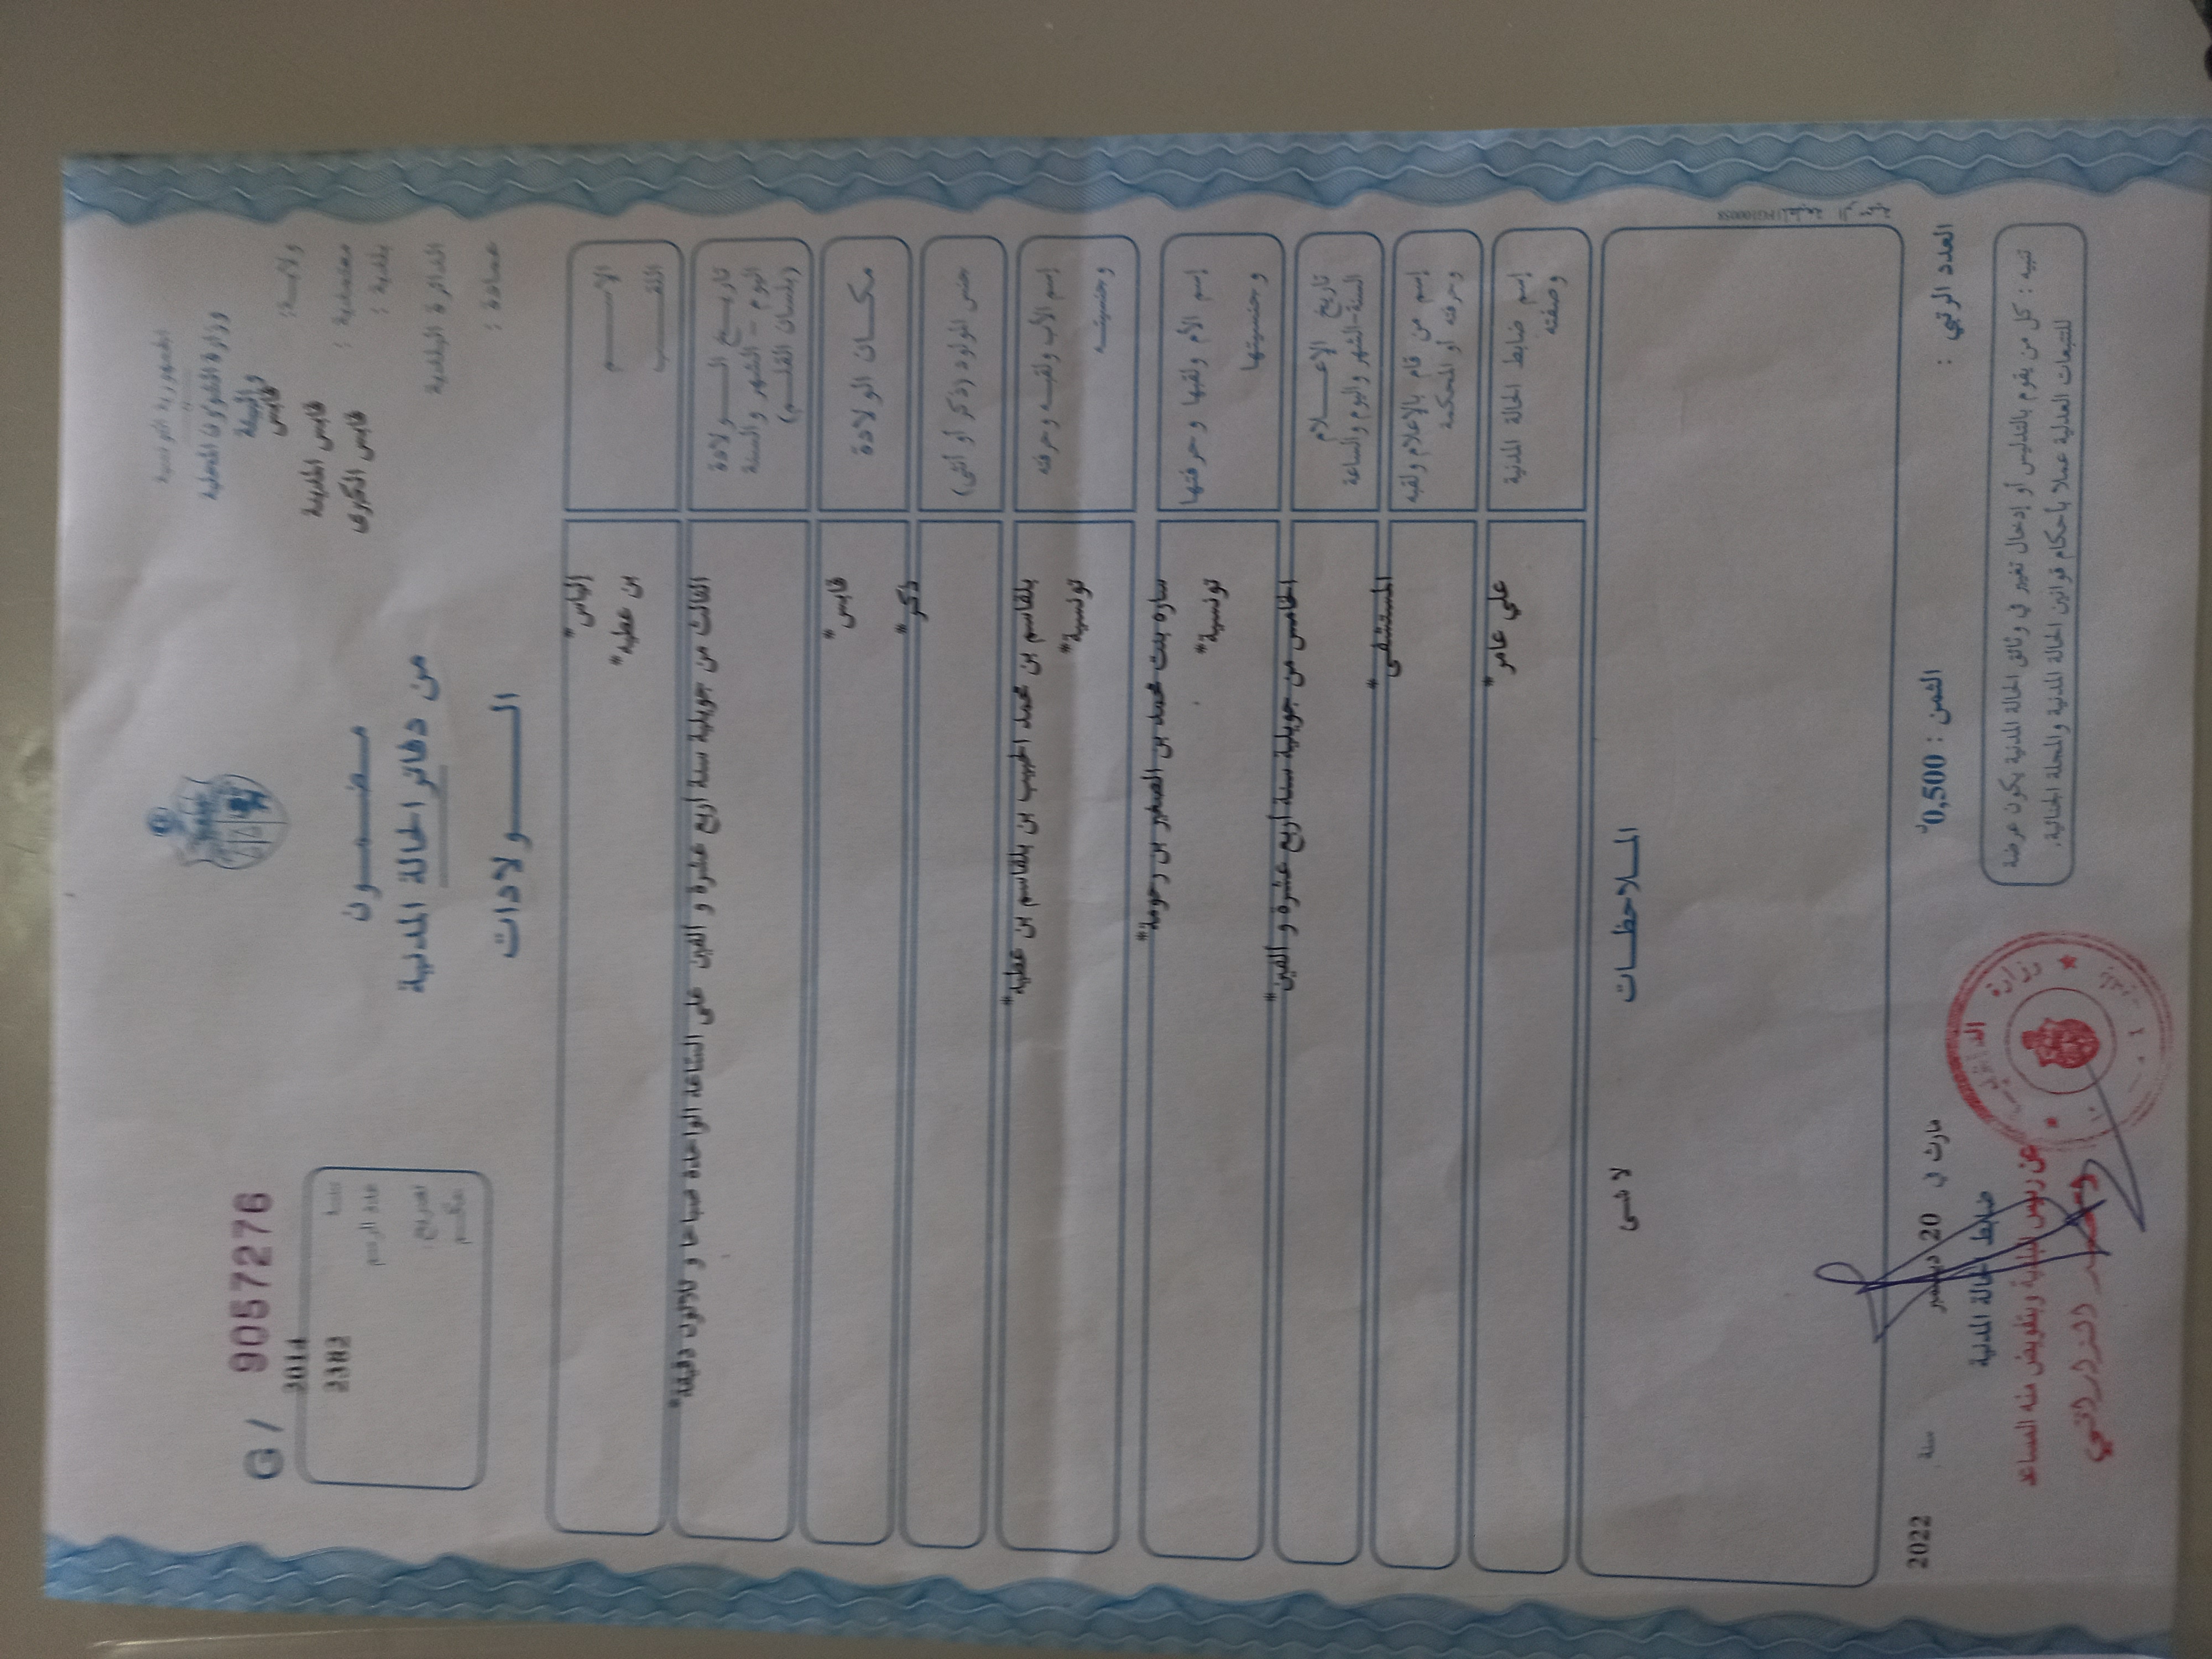 الجمهورية التونسية
وزارة الشؤون المحلية
والبيئة
ولايــة : قابس
معتمدية : قابس المدينة
بلدية : قابس الكبرى
الدائرة البلدية
عمادة :
G / 9057276
2014 سنة
2382 عدد الرسم
تصريح
حكم
مـضـمـون
من دفاتر الحالة المدنية
الـــولادات
الاســـم
إلياس*
اللقـــب
بن عطيه*
تاريـــخ الـــولادة
اليوم - الشهر والسنة
(بلسان القلـــم)
الثالث من جويلية سنة أربع عشرة و ألفين على الساعة الواحدة صباحا و ثلاثون دقيقة*
مكــان الولادة
قابس*
جنس المولود (ذكر أو أنثى)
ذكر*
إسم الأب ولقبـه وحرفته
بلقاسم بن محمد الحبيب بن بلقاسم بن عطيه*
وجنسيتــه
تونسية*
إسم الأم ولقبها وحرفتها
ساره بنت محمد بن الصغير بن رحومة*
وجنسيتها
تونسية*
تاريخ الاعـــلام
السنة-الشهر واليوم والساعة
الخامس من جويلية سنة أربع عشرة و ألفين*
إسم من قام بالاعلام ولقبه
وحرفته أو المحكمة
المستشفى*
إسم ضابط الحالة المدنية
وصفته
علي عامر*
المـلاحظــات
لا شئ
المطبعة الرسمية
العدد الرتبي :
الثمن : 0,500د
مارث في 20 ديسمبر سنة 2022
ضابط الحالة المدنية
تنبيه : كل من يقوم بالتدليس أو إدخال تغيير في وثائق الحالة المدنية يكون عرضة
للتتبعات العدلية عملا بأحكام قوانين الحالة المدنية والمجلة الجنائية.
وزارة الداخلية
عن رئيس البلدية وبتفويض منه المساعد